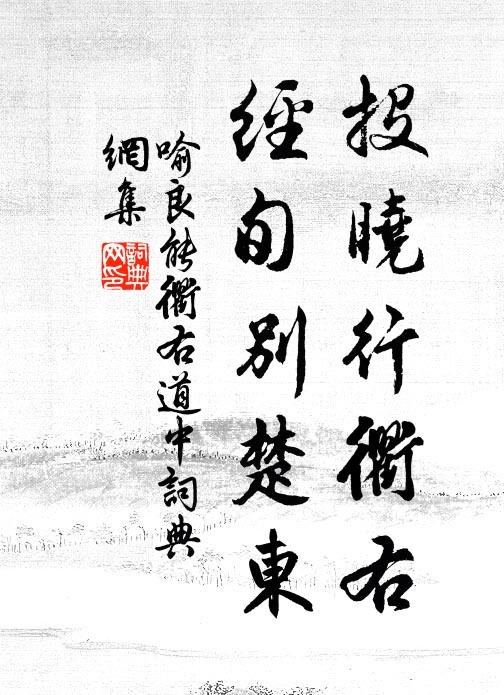 投曉行衢右
經旬別楚東
喻良能衢右道中詞典
網集
詞典
网印